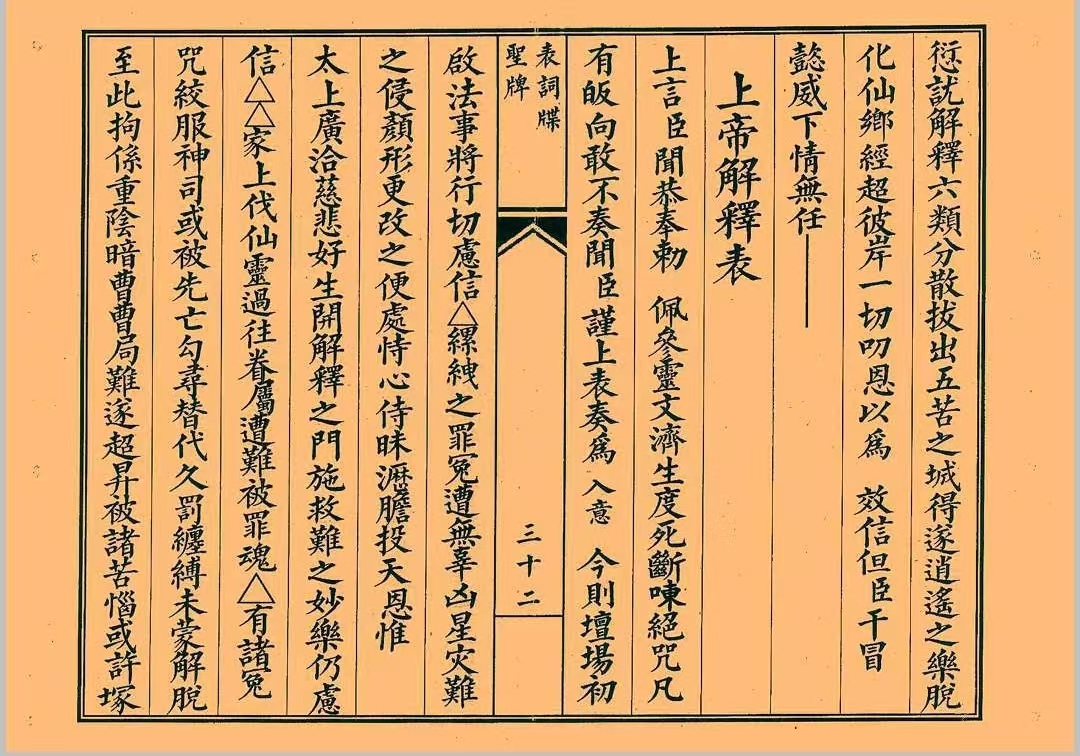 愆訧解釋六類分散拔出五苦之城得遂逍遙之樂脫
化仙鄉經超彼岸一切叨恩以為　效信但臣干冒
懿威下情無任
上帝解釋表
上言臣聞恭奉勅　佩叅靈文濟生度死斷唻絕咒凡
有皈向敢不奏聞臣謹上表奏為 入意　今則壇場初
表詞牒
聖牌
三十二
啟法事將行切慮信△縲絏之罪冤遭無辜凶星灾難
之侵顏形更改之便處恃心侍昧瀝膽投天恩惟
太上廣洽慈悲好生開解釋之門施救難之妙樂仍慮
信△△家上伐仙靈過往眷屬遭難被罪魂△有諸冤
咒絞服神司或被先亡勾尋替代久罰纏縛未蒙解脫
至此拘係重陰暗曹曹局難遂超昇被諸苦惱或許塚